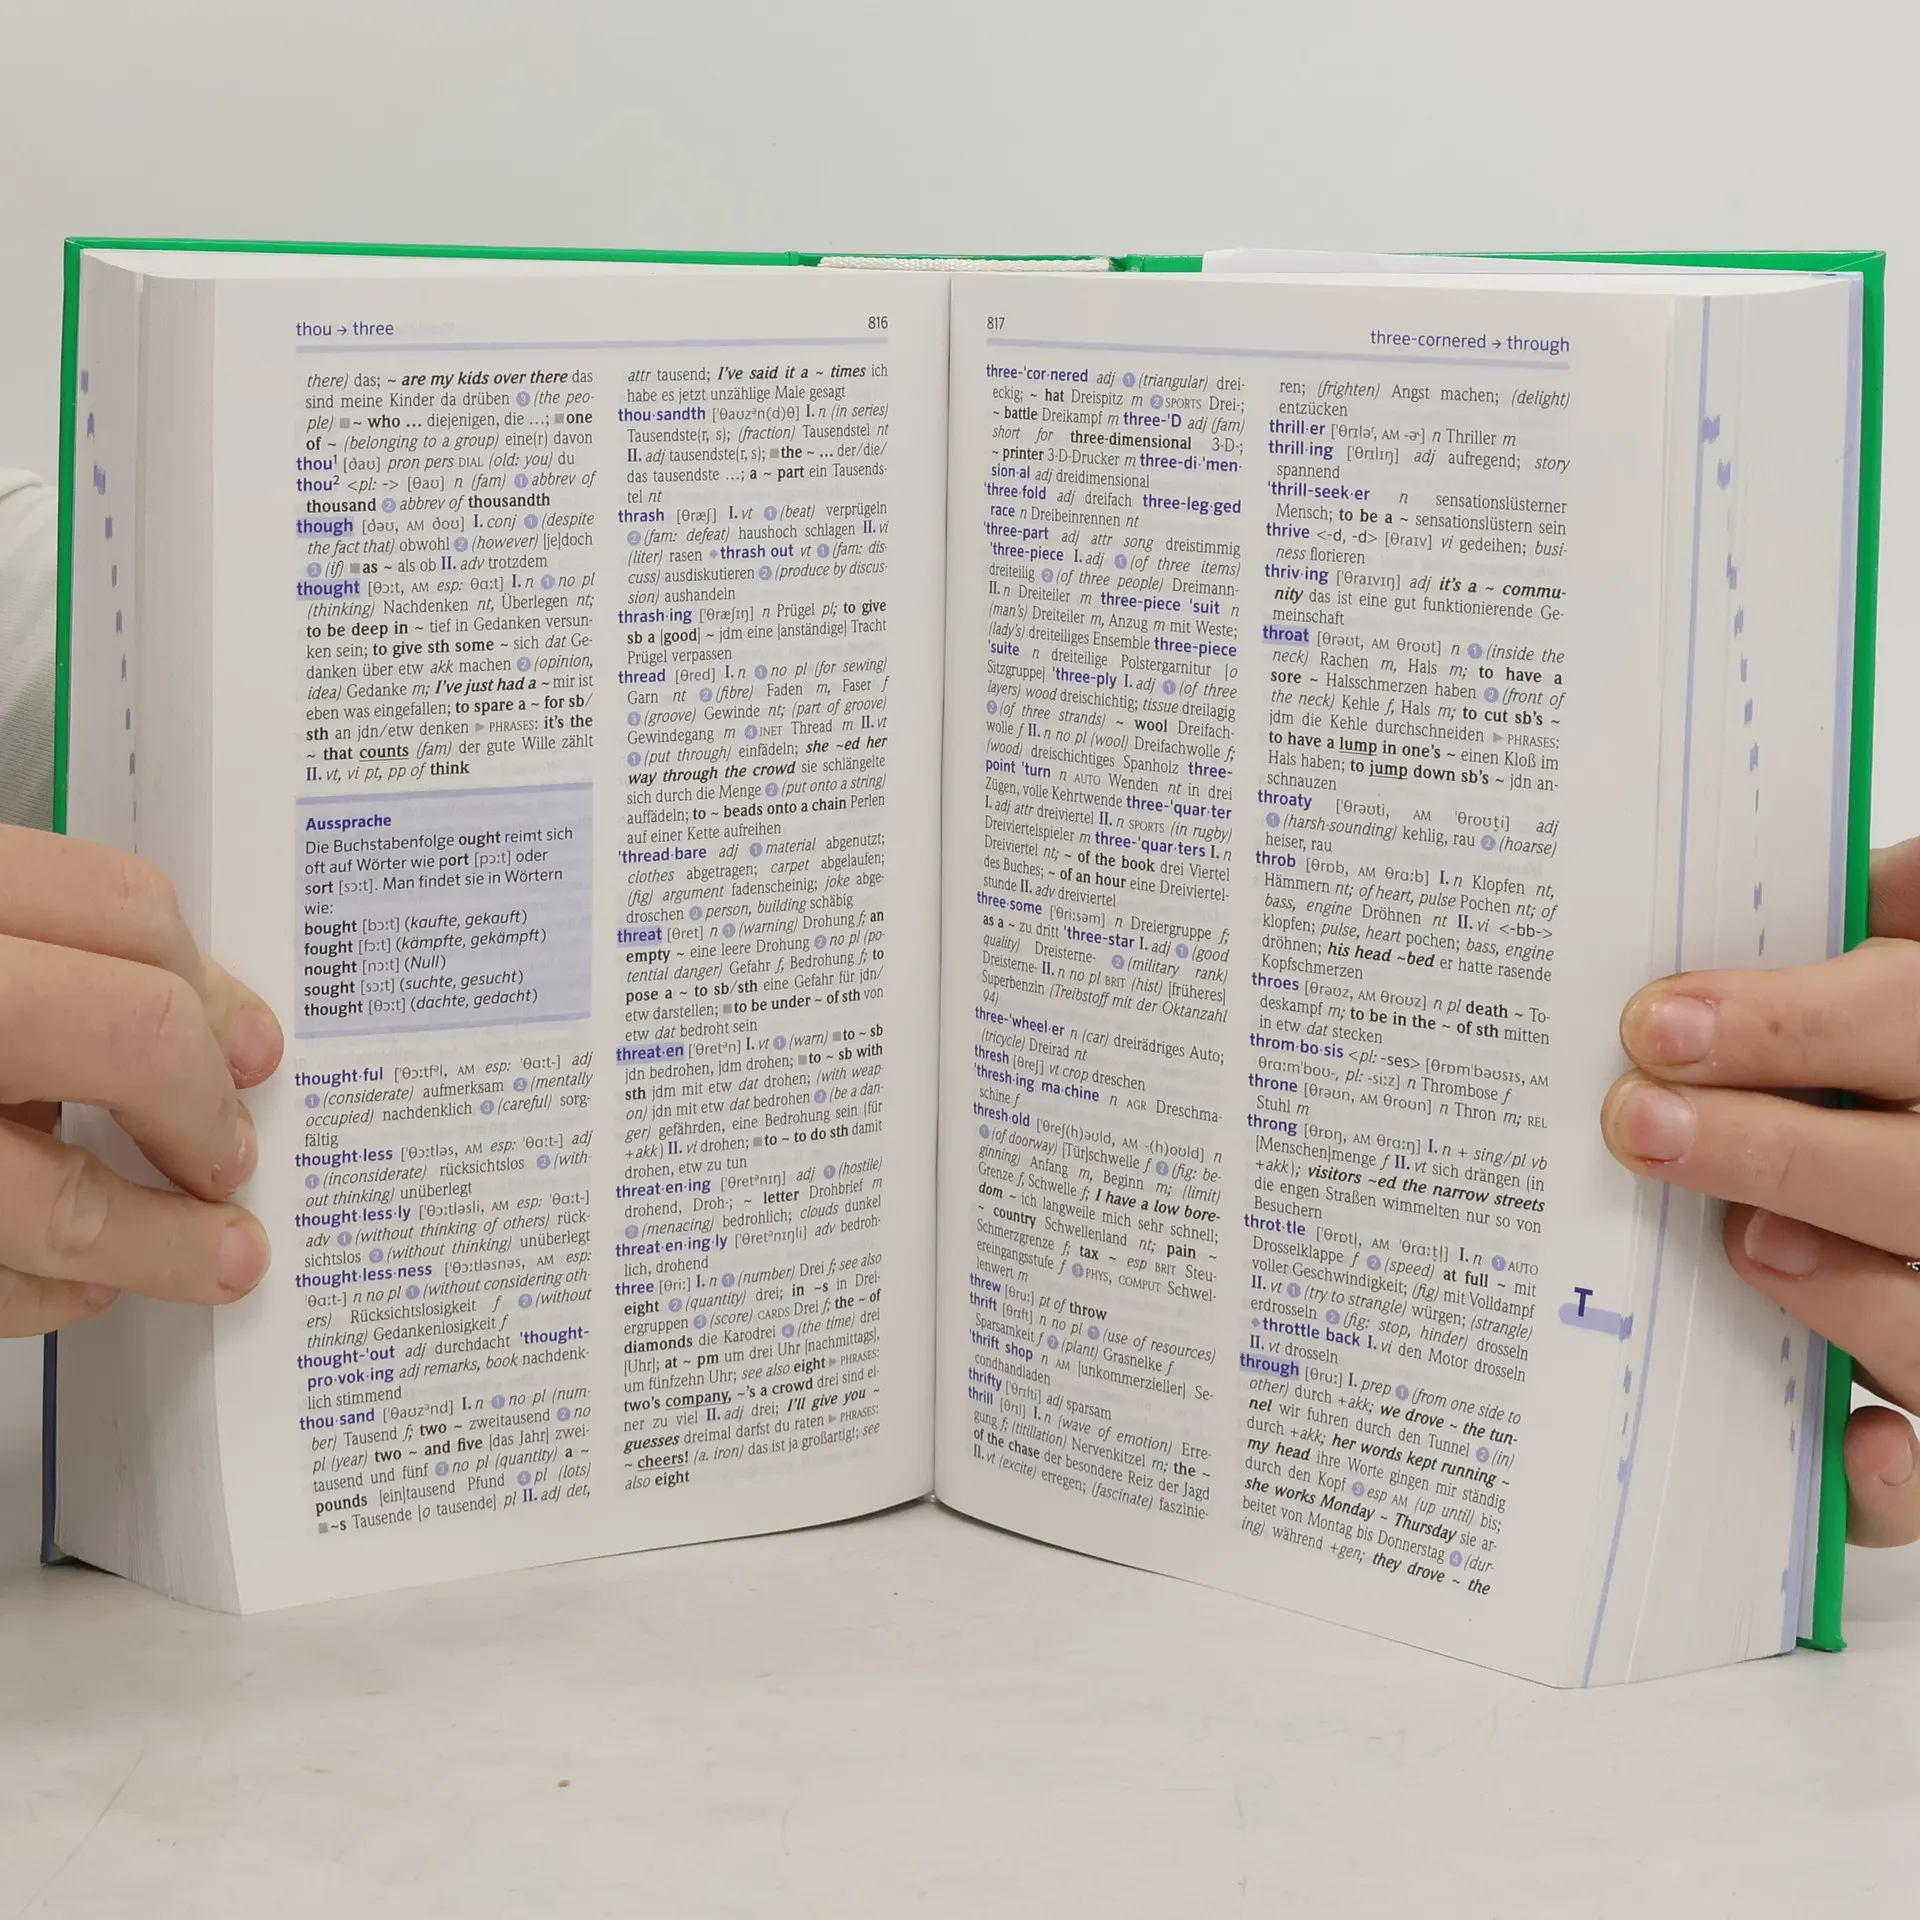 thou → three
816
there) das; ~ are my kids over there das
sind meine Kinder da drüben ③ (the peo-
ple) ■ ~ who … diejenigen, die …; ■ one
of ~ (belonging to a group) eine(r) davon
thou¹ [ðaʊ] pron pers DIAL (old: you) du
thou² <pl: -> [θaʊ] n (fam) ① abbrev of
thousand ② abbrev of thousandth
though [ðəʊ, AM ðoʊ] I. conj ① (despite
the fact that) obwohl ② (however) [je]doch
③ (if) ■ as ~ als ob II. adv trotzdem
thought [θɔ:t, AM esp: θɑ:t] I. n ① no pl
(thinking) Nachdenken nt, Überlegen nt;
to be deep in ~ tief in Gedanken versun-
ken sein; to give sth some ~ sich dat Ge-
danken über etw akk machen ② (opinion,
idea) Gedanke m; I've just had a ~ mir ist
eben was eingefallen; to spare a ~ for sb/
sth an jdn/etw denken ▶ PHRASES: it's the
~ that counts (fam) der gute Wille zählt
II. vt, vi pt, pp of think
Aussprache
Die Buchstabenfolge ought reimt sich
oft auf Wörter wie port [pɔ:t] oder
sort [sɔ:t]. Man findet sie in Wörtern
wie:
bought [bɔ:t] (kaufte, gekauft)
fought [fɔ:t] (kämpfte, gekämpft)
nought [nɔ:t] (Null)
sought [sɔ:t] (suchte, gesucht)
thought [θɔ:t] (dachte, gedacht)
thought·ful ['θɔ:tfəl, AM esp: 'θɑ:t-] adj
① (considerate) aufmerksam ② (mentally
occupied) nachdenklich ③ (careful) sorg-
fältig
thought·less ['θɔ:tləs, AM esp: 'θɑ:t-] adj
① (inconsiderate) rücksichtslos ② (with-
out thinking) unüberlegt
thought·less·ly ['θɔ:tləsli, AM esp: 'θɑ:t-]
adv ① (without thinking of others) rück-
sichtslos ② (without thinking) unüberlegt
thought·less·ness ['θɔ:tləsnəs, AM esp:
'θɑ:t-] n no pl ① (without considering oth-
ers) Rücksichtslosigkeit f ② (without
thinking) Gedankenlosigkeit f
thought-'out adj durchdacht 'thought-
pro·vok·ing adj remarks, book nachdenk-
lich stimmend
thou·sand ['θaʊzᵊnd] I. n ① no pl (num-
ber) Tausend f; two ~ zweitausend ② no
pl (year) two ~ and five [das Jahr] zwei-
tausend und fünf ③ no pl (quantity) a ~
pounds [ein]tausend Pfund ④ pl (lots)
■ ~s Tausende [o tausende] pl II. adj det,
attr tausend; I've said it a ~ times ich
habe es jetzt unzählige Male gesagt
thou·sandth ['θaʊzᵊn(d)θ] I. n (in series)
Tausendste(r, s); (fraction) Tausendstel nt
II. adj tausendste(r, s); ■ the ~ … der/die/
das tausendste …; a ~ part ein Tausends-
tel nt
thrash [θræʃ] I. vt ① (beat) verprügeln
② (fam: defeat) haushoch schlagen II. vi
(liter) rasen ◆ thrash out vt ① (fam: dis-
cuss) ausdiskutieren ② (produce by discus-
sion) aushandeln
thrash·ing ['θræʃɪŋ] n Prügel pl; to give
sb a [good] ~ jdm eine [anständige] Tracht
Prügel verpassen
thread [θred] I. n ① no pl (for sewing)
Garn nt ② (fibre) Faden m, Faser f
③ (groove) Gewinde nt; (part of groove)
Gewindegang m ④ INET Thread m II. vt
① (put through) einfädeln; she ~ed her
way through the crowd sie schlängelte
sich durch die Menge ② (put onto a string)
auffädeln; to ~ beads onto a chain Perlen
auf einer Kette aufreihen
'thread·bare adj ① material abgenutzt;
clothes abgetragen; carpet abgelaufen;
(fig) argument fadenscheinig; joke abge-
droschen ② person, building schäbig
threat [θret] n ① (warning) Drohung f; an
empty ~ eine leere Drohung ② no pl (po-
tential danger) Gefahr f, Bedrohung f; to
pose a ~ to sb/sth eine Gefahr für jdn/
etw darstellen; ■ to be under ~ of sth von
etw dat bedroht sein
threat·en [θretᵊn] I. vt ① (warn) ■ to ~ sb
jdn bedrohen, jdm drohen; ■ to ~ sb with
sth jdm mit etw dat drohen; (with weap-
on) jdn mit etw dat bedrohen ② (be a dan-
ger) gefährden, eine Bedrohung sein (für
+akk) II. vi drohen; ■ to ~ to do sth damit
drohen, etw zu tun
threat·en·ing ['θretᵊnɪŋ] adj ① (hostile)
drohend, Droh-; ~ letter Drohbrief m
② (menacing) bedrohlich; clouds dunkel
threat·en·ing·ly ['θretᵊnɪŋli] adv bedroh-
lich, drohend
three [θri:] I. n ① (number) Drei f; see also
eight ② (quantity) drei; in ~s in Drei-
ergruppen ③ (score) CARDS Drei f; the ~ of
diamonds die Karodrei ④ (the time) drei
[Uhr]; at ~ pm um drei Uhr [nachmittags],
um fünfzehn Uhr; see also eight ▶ PHRASES:
two's company, ~'s a crowd drei sind ei-
ner zu viel II. adj drei; I'll give you ~
guesses dreimal darfst du raten ▶ PHRASES:
~ cheers! (a. iron) das ist ja großartig!; see
also eight
817
three-cornered → through
three-'cor·nered adj ① (triangular) drei-
eckig; ~ hat Dreispitz m ② SPORTS Drei-;
~ battle Dreikampf m three-'D adj (fam)
short for three-dimensional 3-D-;
~ printer 3-D-Drucker m three-di·'men·
sion·al adj dreidimensional
'three·fold adj dreifach three-leg·ged
race n Dreibeinrennen nt
'three-part adj attr song dreistimmig
'three-piece I. adj ① (of three items)
dreiteilig ② (of three people) Dreimann-
II. n Dreiteiler m three-piece 'suit n
(man's) Dreiteiler m, Anzug m mit Weste;
(lady's) dreiteiliges Ensemble three-piece
'suite n dreiteilige Polstergarnitur [o
Sitzgruppe] 'three-ply I. adj ① (of three
layers) wood dreischichtig; tissue dreilagig
② (of three strands) ~ wool Dreifach-
wolle f II. n no pl (wool) Dreifachwolle f;
(wood) dreischichtiges Spanholz three-
point 'turn n AUTO Wenden nt in drei
Zügen, volle Kehrtwende three-'quar·ter
I. adj attr dreiviertel II. n SPORTS (in rugby)
Dreiviertelspieler m three-'quar·ters I. n
Dreiviertel nt; ~ of the book drei Viertel
des Buches; ~ of an hour eine Dreiviertel-
stunde II. adv dreiviertel
three·some ['θri:səm] n Dreiergruppe f;
as a ~ zu dritt 'three-star I. adj ① (good
quality) Dreisterne- ② (military rank)
Dreisterne- II. n no pl BRIT (hist) [früheres]
Superbenzin (Treibstoff mit der Oktanzahl
94)
three-'wheel·er n (car) dreirädriges Auto;
(tricycle) Dreirad nt
thresh [θreʃ] vt crop dreschen
'thresh·ing ma·chine n AGR Dreschma-
schine f
thresh·old ['θreʃ(h)əʊld, AM -(h)oʊld] n
① (of doorway) [Tür]schwelle f ② (fig: be-
ginning) Anfang m, Beginn m; (limit)
Grenze f, Schwelle f; I have a low bore-
dom ~ ich langweile mich sehr schnell;
~ country Schwellenland nt; pain ~
Schmerzgrenze f; tax ~ esp BRIT Steu-
ereingangsstufe f ③ PHYS, COMPUT Schwel-
lenwert m
threw [θru:] pt of throw
thrift [θrɪft] n no pl ① (use of resources)
Sparsamkeit f ② (plant) Grasnelke f
'thrift shop n AM [unkommerzieller] Se-
condhandladen
thrifty ['θrɪfti] adj sparsam
thrill [θrɪl] I. n (wave of emotion) Erre-
gung f; (titillation) Nervenkitzel m; the ~
of the chase der besondere Reiz der Jagd
II. vt (excite) erregen; (fascinate) faszinie-
ren; (frighten) Angst machen; (delight)
entzücken
thrill·er ['θrɪləʳ, AM -ɚ] n Thriller m
thrill·ing ['θrɪlɪŋ] adj aufregend; story
spannend
'thrill-seek·er n sensationslüsterner
Mensch; to be a ~ sensationslüstern sein
thrive <-d, -d> [θraɪv] vi gedeihen; busi-
ness florieren
thriv·ing ['θraɪvɪŋ] adj it's a ~ commu-
nity das ist eine gut funktionierende Ge-
meinschaft
throat [θrəʊt, AM θroʊt] n ① (inside the
neck) Rachen m, Hals m; to have a
sore ~ Halsschmerzen haben ② (front of
the neck) Kehle f, Hals m; to cut sb's ~
jdm die Kehle durchschneiden ▶ PHRASES:
to have a lump in one's ~ einen Kloß im
Hals haben; to jump down sb's ~ jdn an-
schnauzen
throaty ['θrəʊti, AM 'θroʊt̬i] adj
① (harsh-sounding) kehlig, rau ② (hoarse)
heiser, rau
throb [θrɒb, AM θrɑ:b] I. n Klopfen nt,
Hämmern nt; of heart, pulse Pochen nt; of
bass, engine Dröhnen nt II. vi <-bb->
klopfen; pulse, heart pochen; bass, engine
dröhnen; his head ~bed er hatte rasende
Kopfschmerzen
throes [θrəʊz, AM θroʊz] n pl death ~ To-
deskampf m; to be in the ~ of sth mitten
in etw dat stecken
throm·bo·sis <pl: -ses> [θrɒm'bəʊsɪs, AM
θrɑ:m'boʊ-, pl: -si:z] n Thrombose f
throne [θrəʊn, AM θroʊn] n Thron m; REL
Stuhl m
throng [θrɒŋ, AM θrɑ:ŋ] I. n + sing/pl vb
[Menschen]menge f II. vt sich drängen (in
+akk); visitors ~ed the narrow streets
die engen Straßen wimmelten nur so von
Besuchern
throt·tle ['θrɒtl̩, AM 'θrɑ:t̬l̩] I. n ① AUTO
Drosselklappe f ② (speed) at full ~ mit
voller Geschwindigkeit; (fig) mit Volldampf
II. vt ① (try to strangle) würgen; (strangle)
erdrosseln ② (fig: stop, hinder) drosseln
◆ throttle back I. vi den Motor drosseln
II. vt drosseln
through [θru:] I. prep ① (from one side to
other) durch +akk; we drove ~ the tun-
nel wir fuhren durch den Tunnel ② (in)
durch +akk; her words kept running ~
my head ihre Worte gingen mir ständig
durch den Kopf ③ esp AM (up until) bis;
she works Monday ~ Thursday sie ar-
beitet von Montag bis Donnerstag ④ (dur-
ing) während +gen; they drove ~ the
T